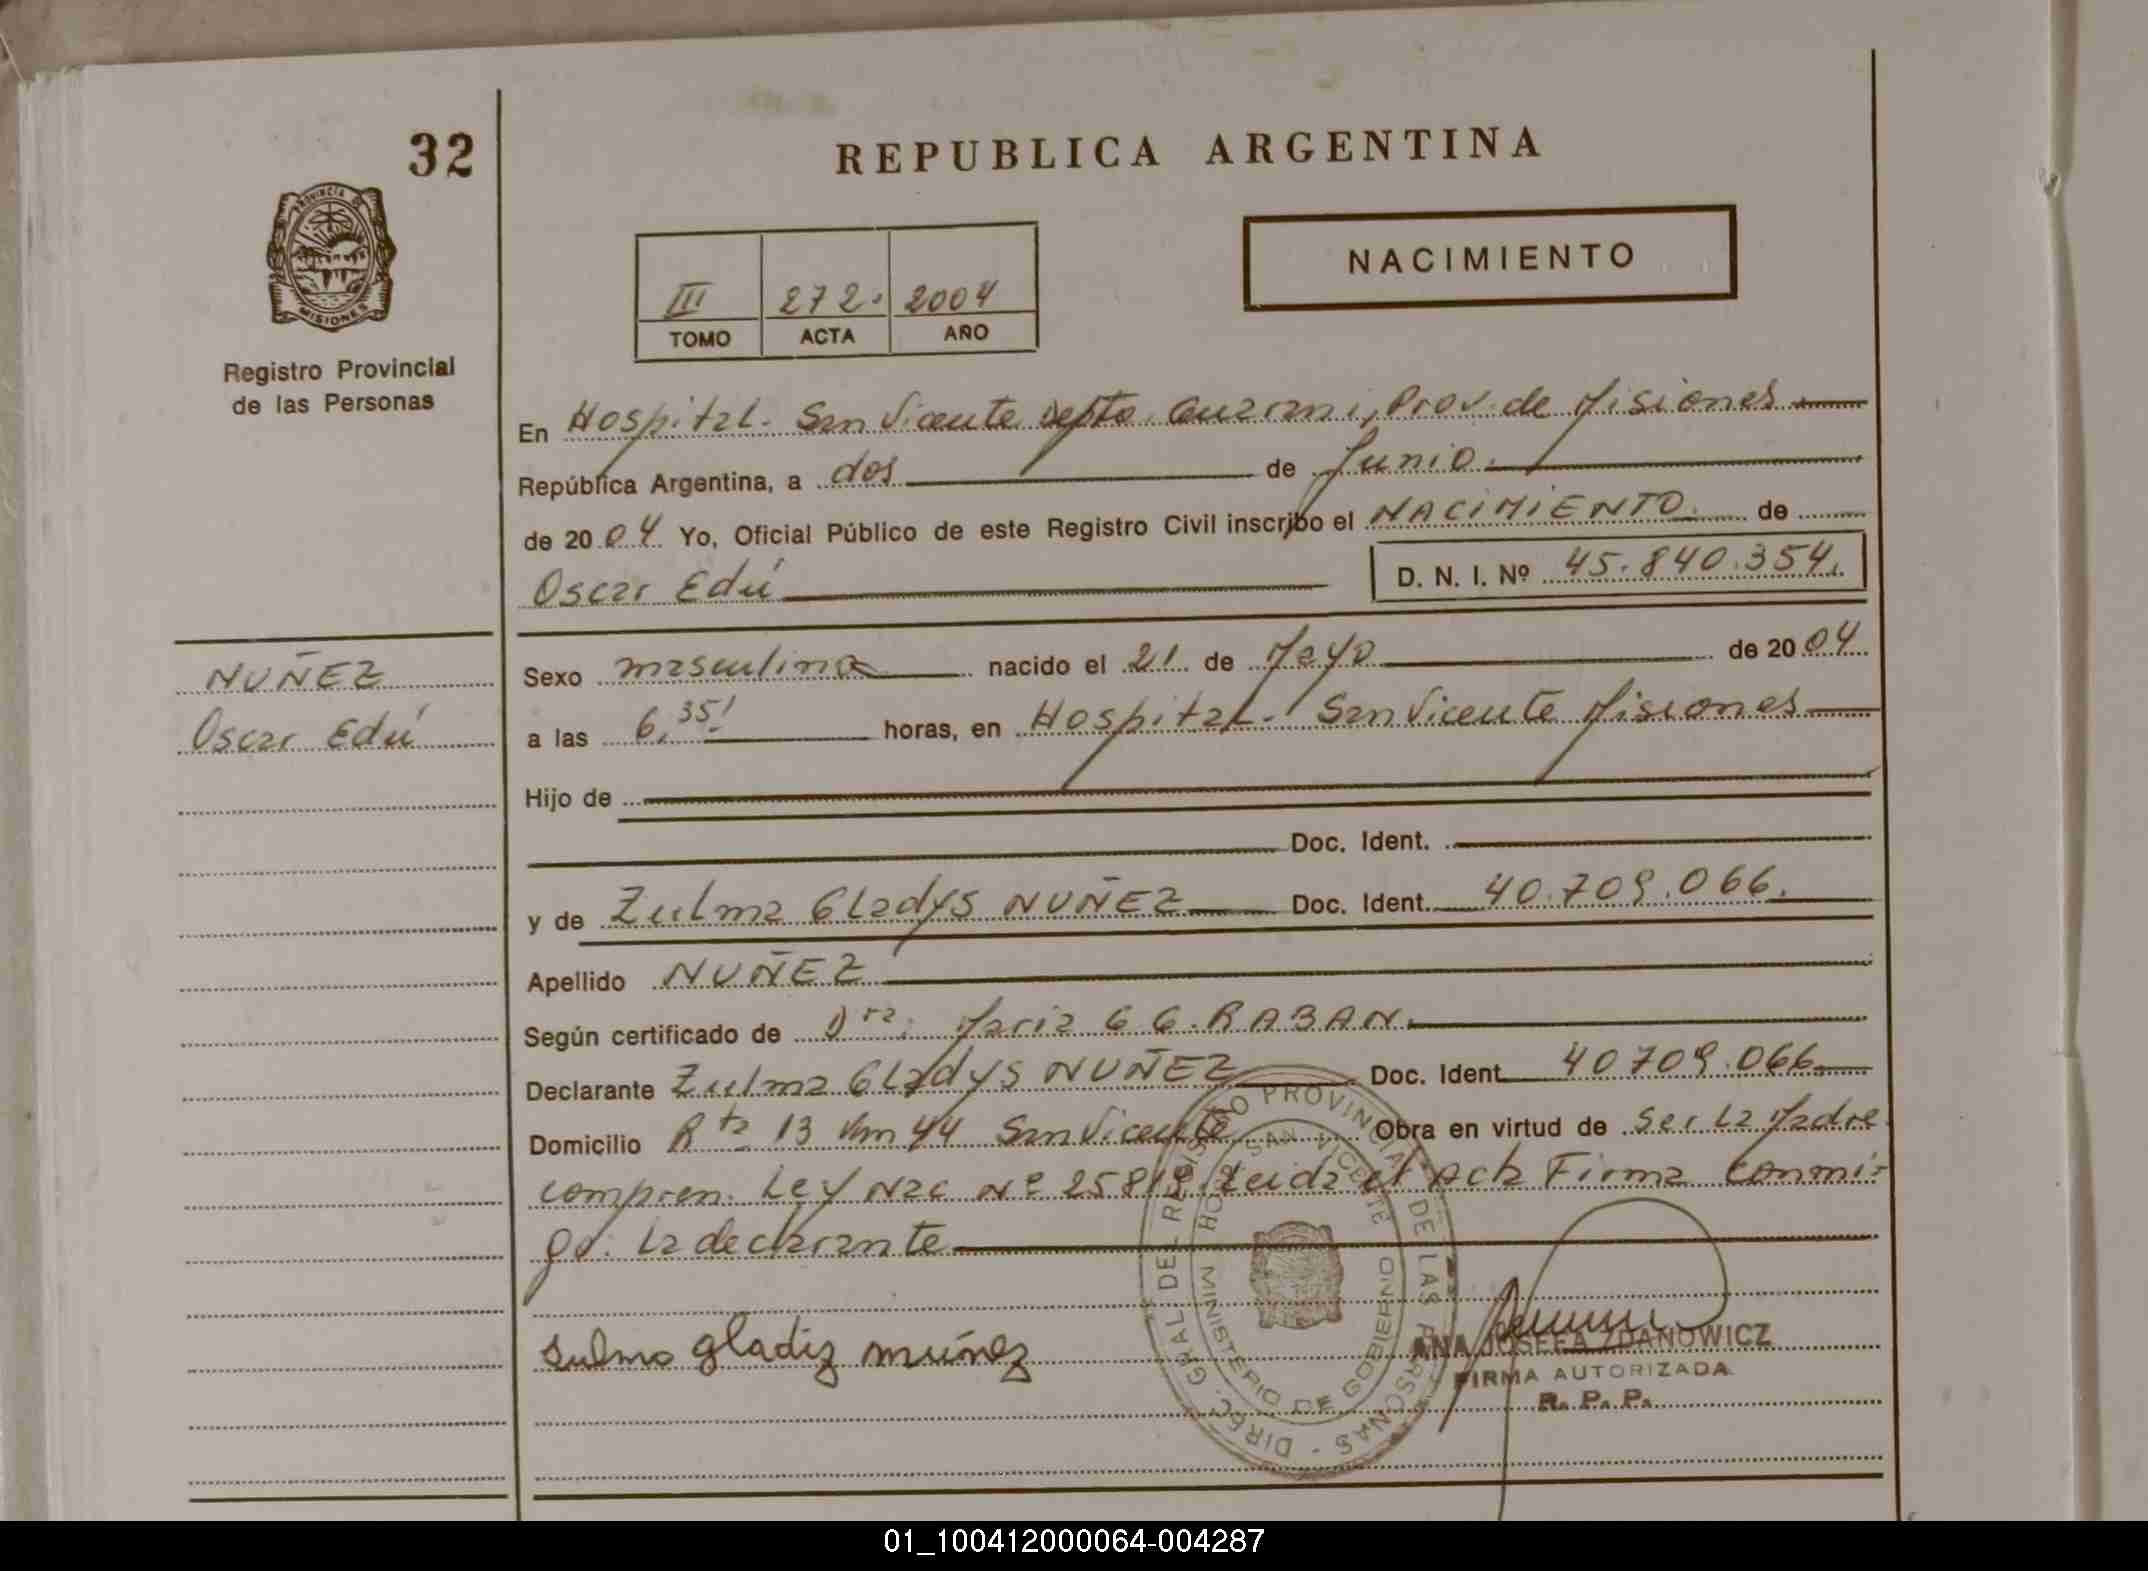 32
REPUBLICA ARGENTINA
PROVINCIA DE
MISIONES
NACIMIENTO
III 272. 2004
TOMO ACTA AÑO
Registro Provincial
de las Personas
En Hospital. San Vicente Depto. Guarani, Prov. de Misiones
República Argentina, a dos de Junio.
de 2004 Yo, Oficial Público de este Registro Civil inscribo el NACIMIENTO. de
Oscar Edú D. N. I. Nº 45.840.354.
NUÑEZ
Oscar Edú
Sexo masculino nacido el 21 de Mayo de 2004
a las 6,35! horas, en Hospital. San Vicente Misiones
Hijo de
Doc. Ident.
y de Zulma Gladys NUÑEZ Doc. Ident. 40.709.066.
Apellido NUÑEZ
Según certificado de Dra. Maria G G. RABAN.
Declarante Zulma Gladys NUÑEZ Doc. Ident. 40709.066.
Domicilio Rta 13 Km 44 San Vicente Obra en virtud de Ser La Madre
compren. Ley Nac Nº 25819 Leida el Acta Firma Conmi-
go. La declarante
sulma gladiz muñez
DIREC. GRAL DEL REGISTRO PROVINCIAL DE LAS PERSONAS -
HOSP. SAN VICENTE
MINISTERIO DE GOBIERNO
ANA JOSEFA ZDANOWICZ
FIRMA AUTORIZADA
R. P. P.
01_100412000064-004287